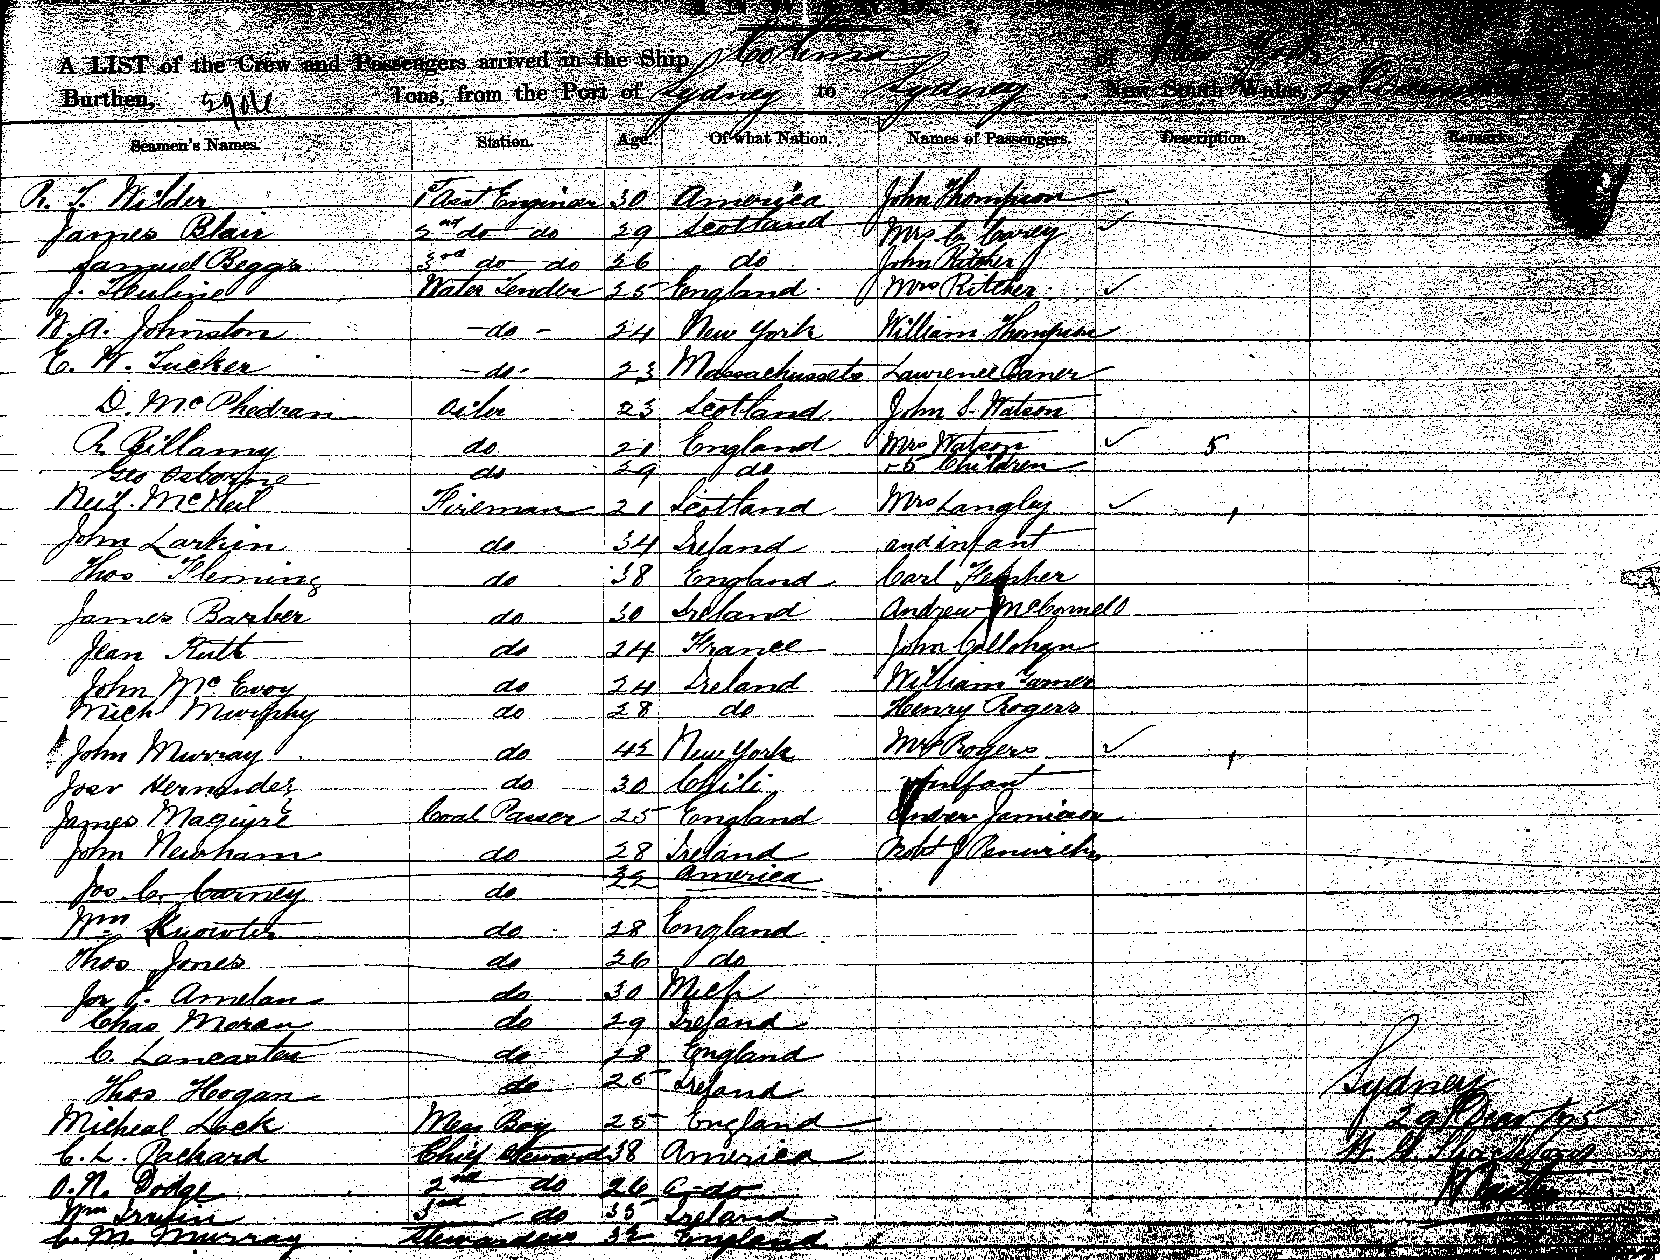 A LIST of the Crew and Passengers arrived in the Ship Colima of New York
Burthen, Tons, from the Port of Sydney to Sydney New South Wales, 29
Seamen's Names. Station. Age. Of what Nation. Names of Passengers. Description Remarks
R. T. Wilder 1st Asst Enginer 30 America John Thompson
James Blair 2nd do do 29 Scotland Mrs C. Carey
Samuel Beggs 3rd do do 26 do John Kitcher
J. Water Tender 25 England Mrs Kitcher
W. A. Johnston - do - 24 New York William Thompson
E. W. Tucker - do - 23 Massachussets Lawrence
D. McPhedran Oiler 23 Scotland John S. Watson
R. Billamy do 21 England Mrs Watson 5
Geo Osborne do 29 do 5 Children
Neil McNeil Fireman 21 Scotland Mrs Langley 1
John Larkin do 34 Ireland and infant
Thos Fleming do 38 England Carl
James Barber do 30 Ireland Andrew McConnell
Jean Ruth do 24 France John Callohan
John McEvoy do 24 Ireland William
Mich Murphy do 28 do Henry Rogers
John Murray do 42 New York Mrs Rogers 1
Hernandez do 30 Chili infant
James Maguyre Coal Passer 25 England Andrew Jamieson
John Newham do 28 Ireland Robt J
Jos C. Carney do America
Wm do 28 England
Thos Jones do 26 do
do 30 Mich
Chas Moran do 29 Ireland
C. Lancaster do 28 England
Thos Hogan do 25 Ireland Sydney
Micheal Lock Mess Boy 25 England 29
C. L. Packard Chief Steward 38 America
O. N. Dodge 2nd do 26 do
Wm Irwin 3rd do 35 Ireland
C. M. Murray Stewardess England